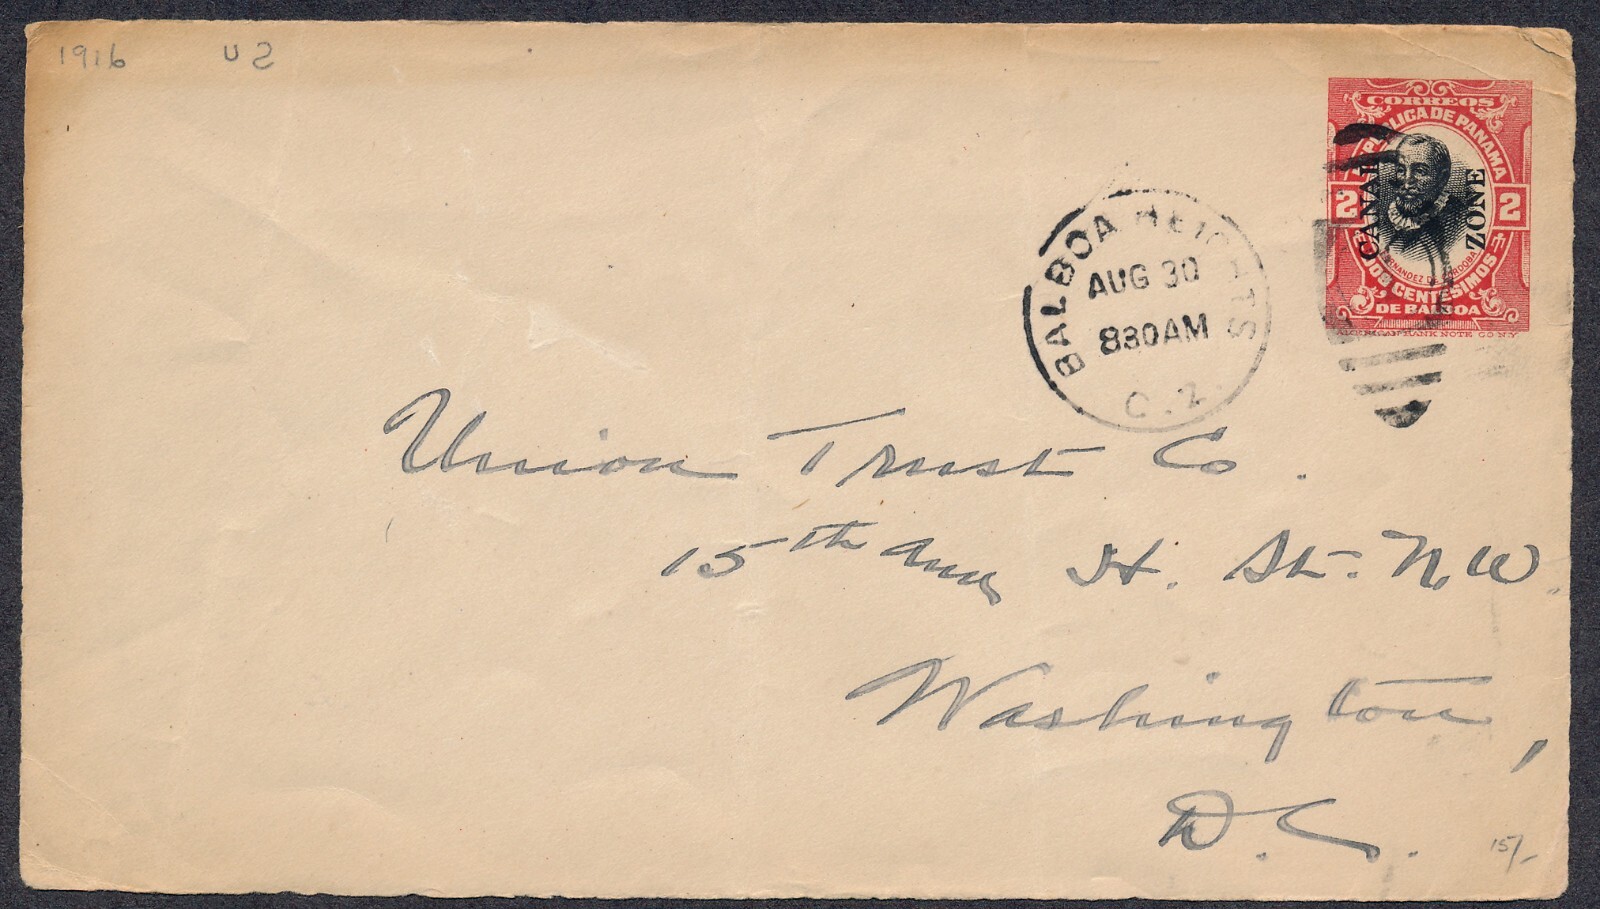 1916 U2
CORREOS
REPUBLICA DE PANAMA
2 CANAL ZONE 2
FERNANDEZ DE CORDOBA
DOS CENTESIMOS
DE BALBOA
BANK NOTE CO. N.Y.
BALBOA HEIGHTS
AUG 30
830AM
C.Z.
Union Trust Co.
15th and H. St. N.W.
Washington,
D.C.
15/-